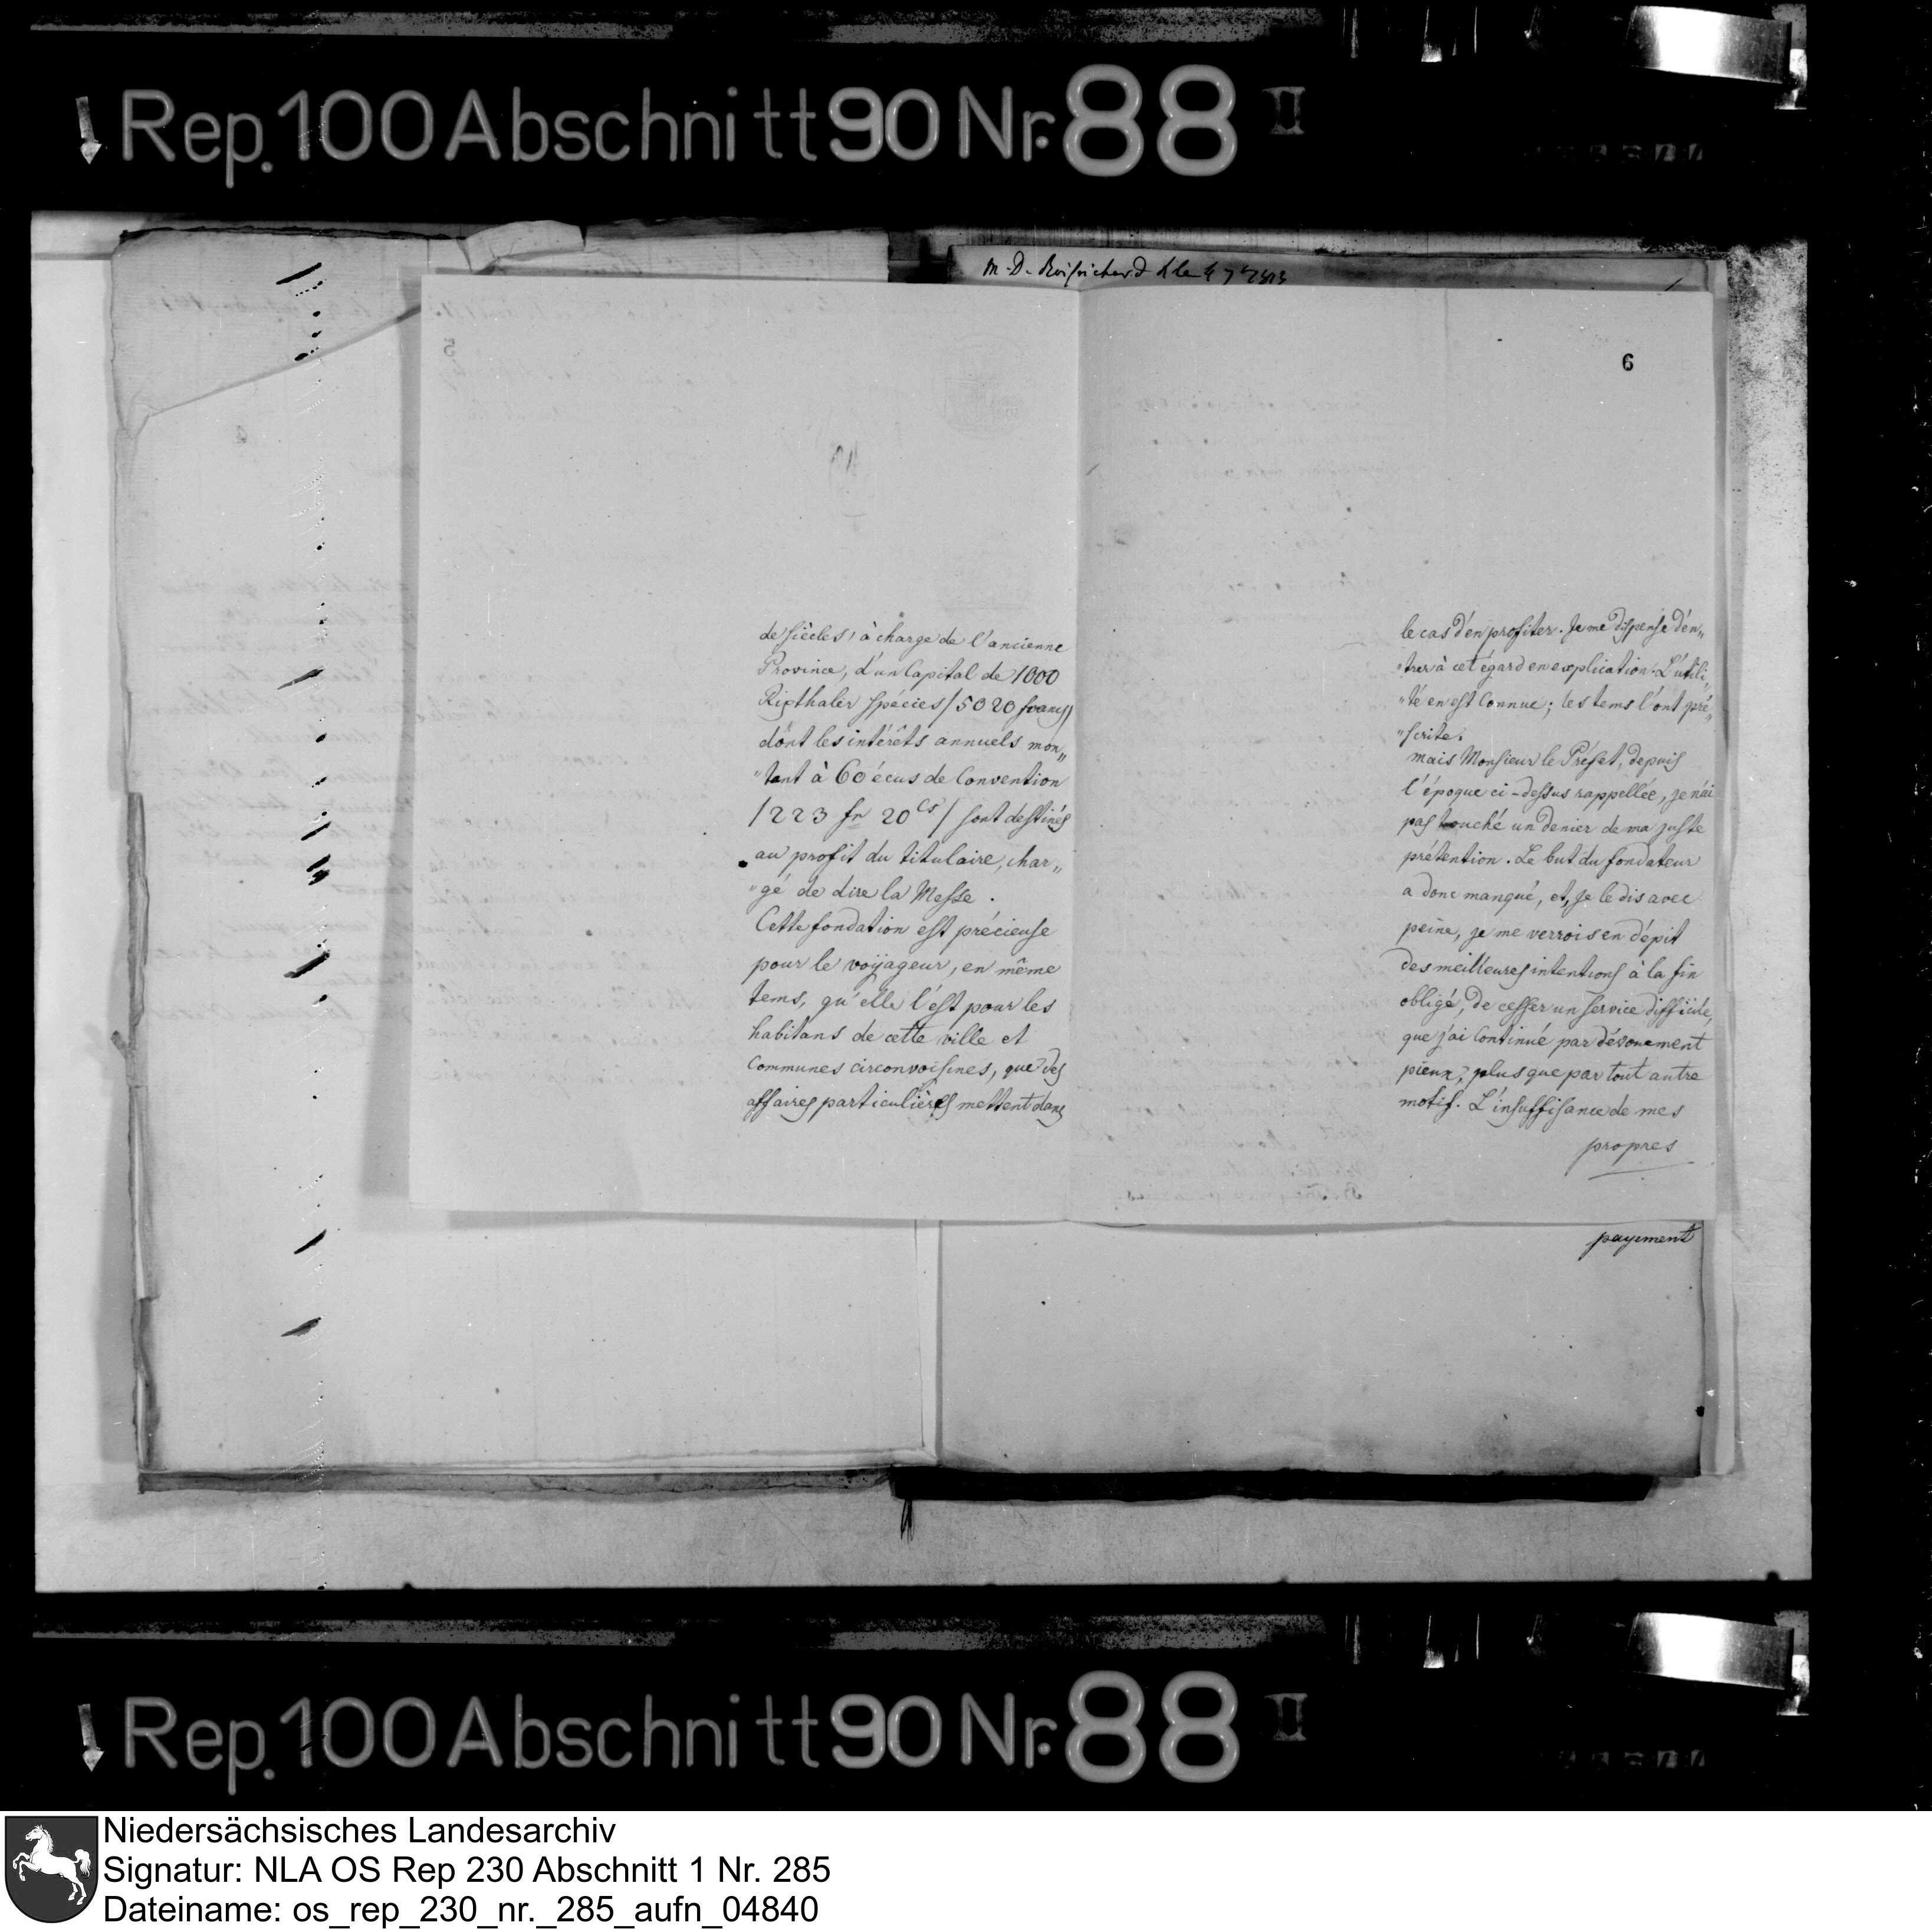 Rep. 100 Abschnitt 90 Nr. 88 II
6
de siècles, à charge de l'ancienne
Province, d'un Capital de 1000
Risthaler spécies /5020 francs/
dont les intérêts annuels mon„
„tant à 60 écus de Convention
/223 fr 20 Cs/ sont destinés
au profit du titulaire, char„
„gé de dire la Messe.
Cette fondation est précieuse
pour le voÿageur, en même
tems, qu'elle l'est pour les
habitans de cette ville et
communes circonvoisines, que des
affaires particulières mettent dans
le cas d'en profiter. Je me dispense d'en„
„trer à cet égard en explication. L'utili„
„té en est Connue; les tems l'ont pré„
„scrite.
mais Monsieur le Préfet, depuis
l'époque ci-dessus rappellée, je n'ai
pas touché un denier de ma juste
prétention. Le but du fondateur
a donc manqué, et, je le dis avec
peine, je me verrois en dépit
des meilleures intentions à la fin
obligé, de cesser un service difficile,
que j'ai Continué par dévouement
pieux, plus que par tout autre
motif. L'insuffisance de mes
propres
payement
Rep. 100 Abschnitt 90 Nr. 88 II
Niedersächsisches Landesarchiv
Signatur: NLA OS Rep 230 Abschnitt 1 Nr. 285
Dateiname: os_rep_230_nr._285_aufn_04840